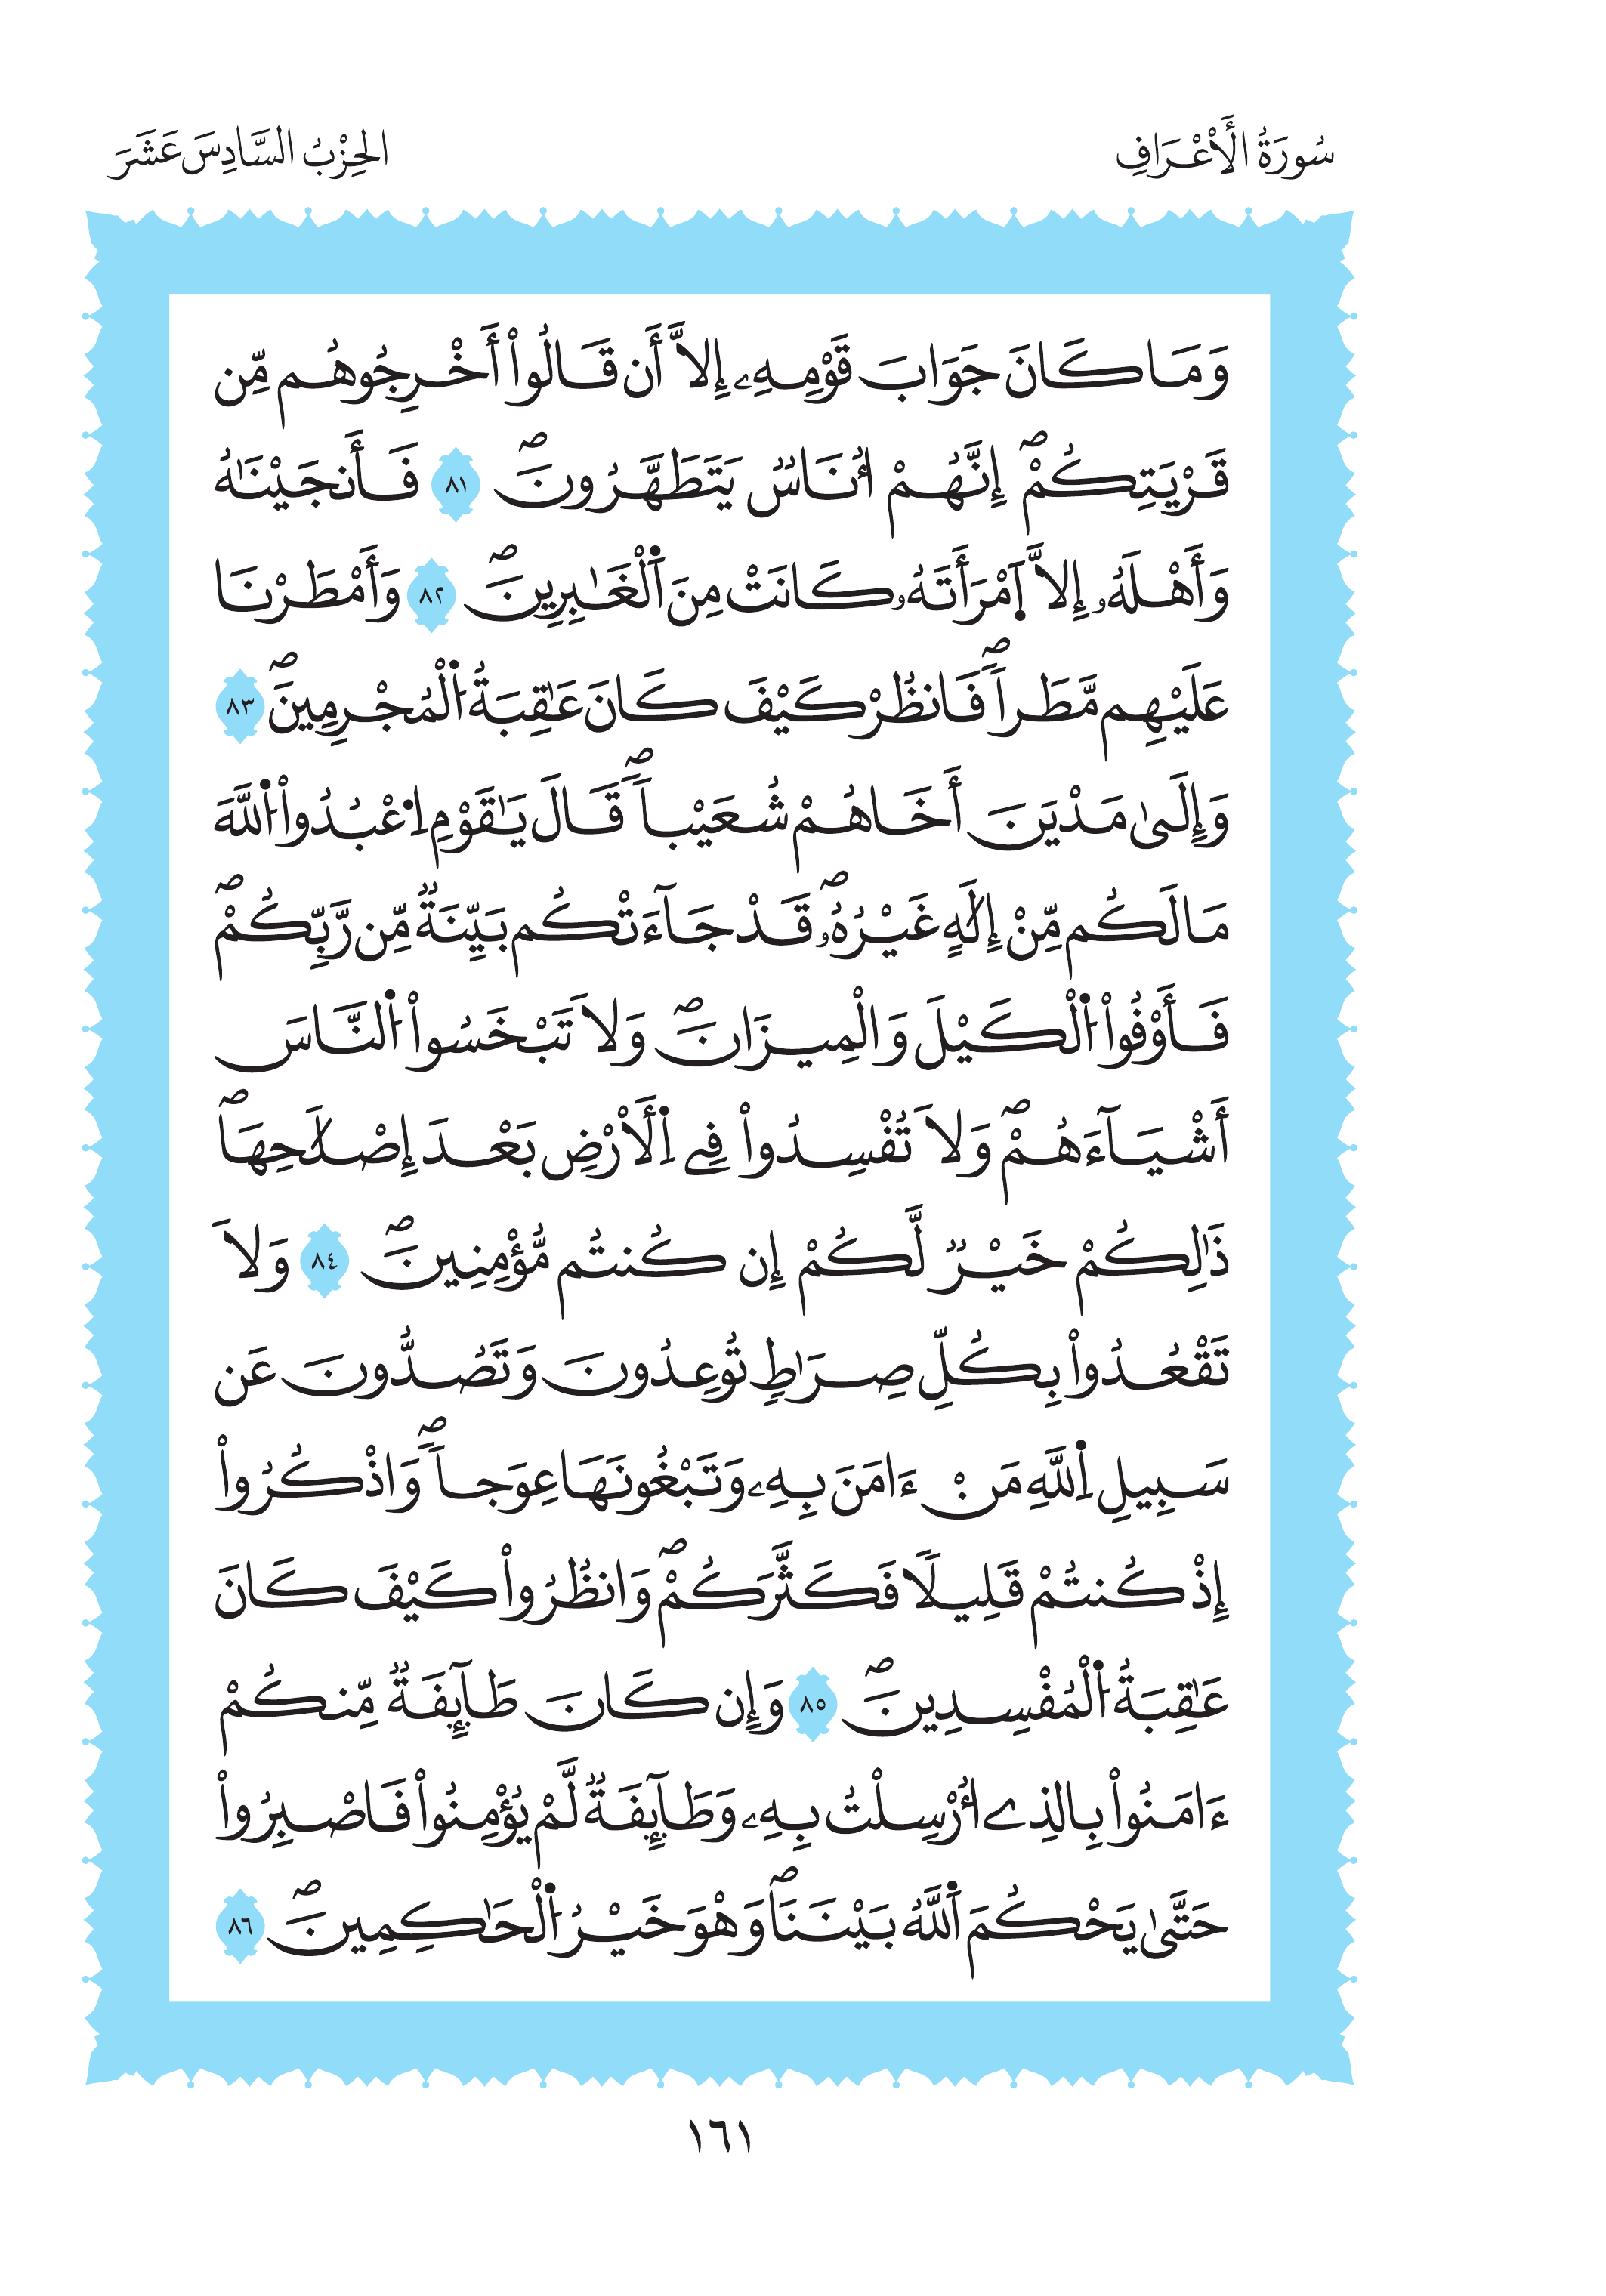 سُورَةُ الأَعْرَافِ
الحِزْبُ السَّادِسَ عَشَرَ
وَمَا كَانَ جَوَابَ قَوْمِهِۦ إِلاَّ أَن قَالُواْ أَخْرِجُوهُم مِّن
قَرْيَتِكُمْۖ إِنَّهُمْ أُنَاسٞ يَتَطَهَّرُونَۖ ٨١ فَأَنجَيْنَٰهُ
وَأَهْلَهُۥ إِلاَّ اَ۪مْرَأَتَهُۥ كَانَتْ مِنَ اَ۬لْغَٰبِرِينَۖ ٨٢ وَأَمْطَرْنَا
عَلَيْهِم مَّطَراٗۖ فَانظُرْ كَيْفَ كَانَ عَٰقِبَةُ اُ۬لْمُجْرِمِينَۖ ٨٣
وَإِلَىٰ مَدْيَنَ أَخَاهُمْ شُعَيْباٗۖ قَالَ يَٰقَوْمِ اِ۟عْبُدُواْ اُ۬للَّهَ
مَا لَكُم مِّنْ إِلَٰهٍ غَيْرُهُۥۖ قَدْ جَآءَتْكُم بَيِّنَةٞ مِّن رَّبِّكُمْۖ
فَأَوْفُواْ اُ۬لْكَيْلَ وَالْمِيزَانَۖ وَلَا تَبْخَسُواْ اُ۬لنَّاسَ
أَشْيَآءَهُمْۖ وَلَا تُفْسِدُواْ فِے اِ۬لْأَرْضِ بَعْدَ إِصْلَٰحِهَاۖ
ذَٰلِكُمْ خَيْرٞ لَّكُمْ إِن كُنتُم مُّؤْمِنِينَۖ ٨٤ وَلَا
تَقْعُدُواْ بِكُلِّ صِرَٰطٖ تُوعِدُونَ وَتَصُدُّونَ عَن
سَبِيلِ اِ۬للَّهِ مَنْ ءَامَنَ بِهِۦ وَتَبْغُونَهَا عِوَجاٗۖ وَاذْكُرُواْ
إِذْ كُنتُمْ قَلِيلاٗ فَكَثَّرَكُمْۖ وَانظُرُواْ كَيْفَ كَانَ
عَٰقِبَةُ اُ۬لْمُفْسِدِينَۖ ٨٥ وَإِن كَانَ طَآئِفَةٞ مِّنكُمْ
ءَامَنُواْ بِالذِے أُرْسِلْتُ بِهِۦ وَطَآئِفَةٞ لَّمْ يُؤْمِنُواْ فَاصْبِرُواْ
حَتَّىٰ يَحْكُمَ اَ۬للَّهُ بَيْنَنَاۖ وَهْوَ خَيْرُ اُ۬لْحَٰكِمِينَۖ ٨٦
١٦١